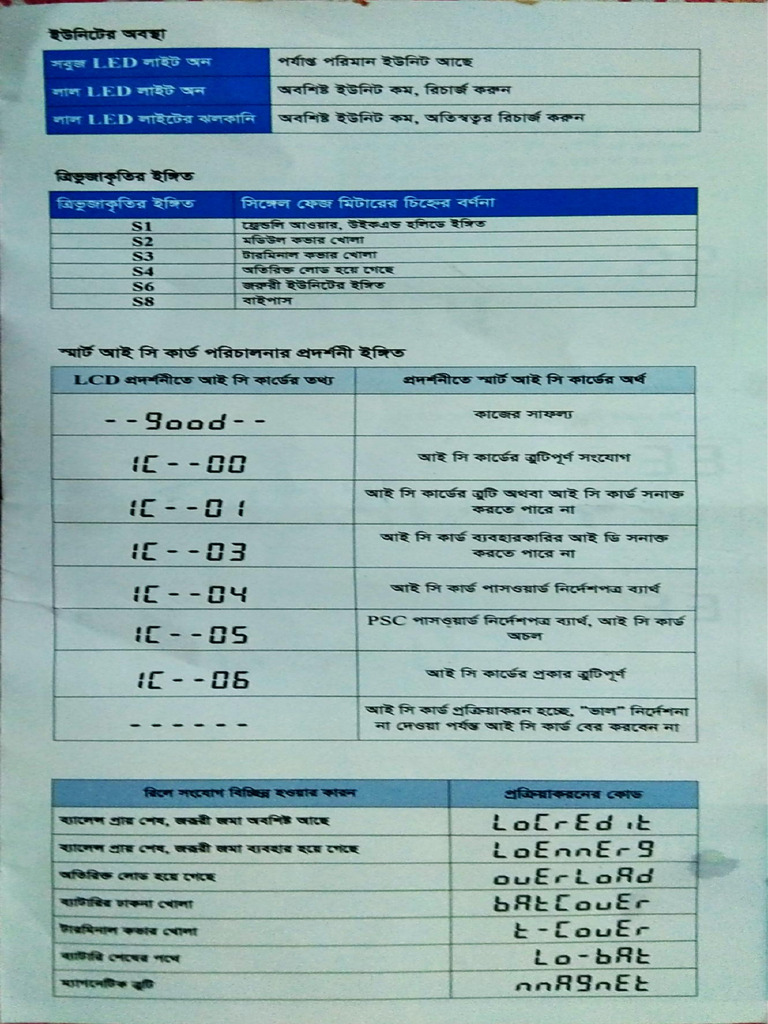 ইউনিটের অবস্থা
সবুজ LED লাইট অন পর্যাপ্ত পরিমান ইউনিট আছে
লাল LED লাইট অন অবশিষ্ট ইউনিট কম, রিচার্জ করুন
লাল LED লাইটের ঝলকানি অবশিষ্ট ইউনিট কম, অতিস্বত্বর রিচার্জ করুন
ত্রিভুজাকৃতির ইঙ্গিত
ত্রিভুজাকৃতির ইঙ্গিত সিঙ্গেল ফেজ মিটারের চিহ্নের বর্ণনা
S1 ফ্রেন্ডলি আওয়ার, উইকএন্ড হলিডে ইঙ্গিত
S2 মডিউল কভার খোলা
S3 টারমিনাল কভার খোলা
S4 অতিরিক্ত লোড হয়ে গেছে
S6 জরুরী ইউনিটের ইঙ্গিত
S8 বাইপাস
স্মার্ট আই সি কার্ড পরিচালনার প্রদর্শনী ইঙ্গিত
LCD প্রদর্শনীতে আই সি কার্ডের তথ্য প্রদর্শনীতে স্মার্ট আই সি কার্ডের অর্থ
--good-- কাজের সাফল্য
IC--00 আই সি কার্ডের ত্রুটিপূর্ণ সংযোগ
IC--01 আই সি কার্ডের ত্রুটি অথবা আই সি কার্ড সনাক্ত
করতে পারে না
IC--03 আই সি কার্ড ব্যবহারকারির আই ডি সনাক্ত
করতে পারে না
IC--04 আই সি কার্ড পাসওয়ার্ড নির্দেশপত্র ব্যার্থ
IC--05 PSC পাসওয়ার্ড নির্দেশপত্র ব্যার্থ, আই সি কার্ড
অচল
IC--06 আই সি কার্ডের প্রকার ত্রুটিপূর্ণ
------ আই সি কার্ড প্রক্রিয়াকরন হচ্ছে, "ভাল" নির্দেশনা
না দেওয়া পর্যন্ত আই সি কার্ড বের করবেন না
রিলে সংযোগ বিচ্ছিন্ন হওয়ার কারন প্রক্রিয়াকরনের কোড
ব্যালেন্স প্রায় শেষ, জরুরী জমা অবশিষ্ট আছে LoCrEdit
ব্যালেন্স প্রায় শেষ, জরুরী জমা ব্যবহার হয়ে গেছে LoEnnErg
অতিরিক্ত লোড হয়ে গেছে ouErLoAd
ব্যাটারির ঢাকনা খোলা bAtCouEr
টারমিনাল কভার খোলা t-CouEr
ব্যাটারি শেষের পথে Lo-bAt
ম্যাগনেটিক ত্রুটি nnAgnEt